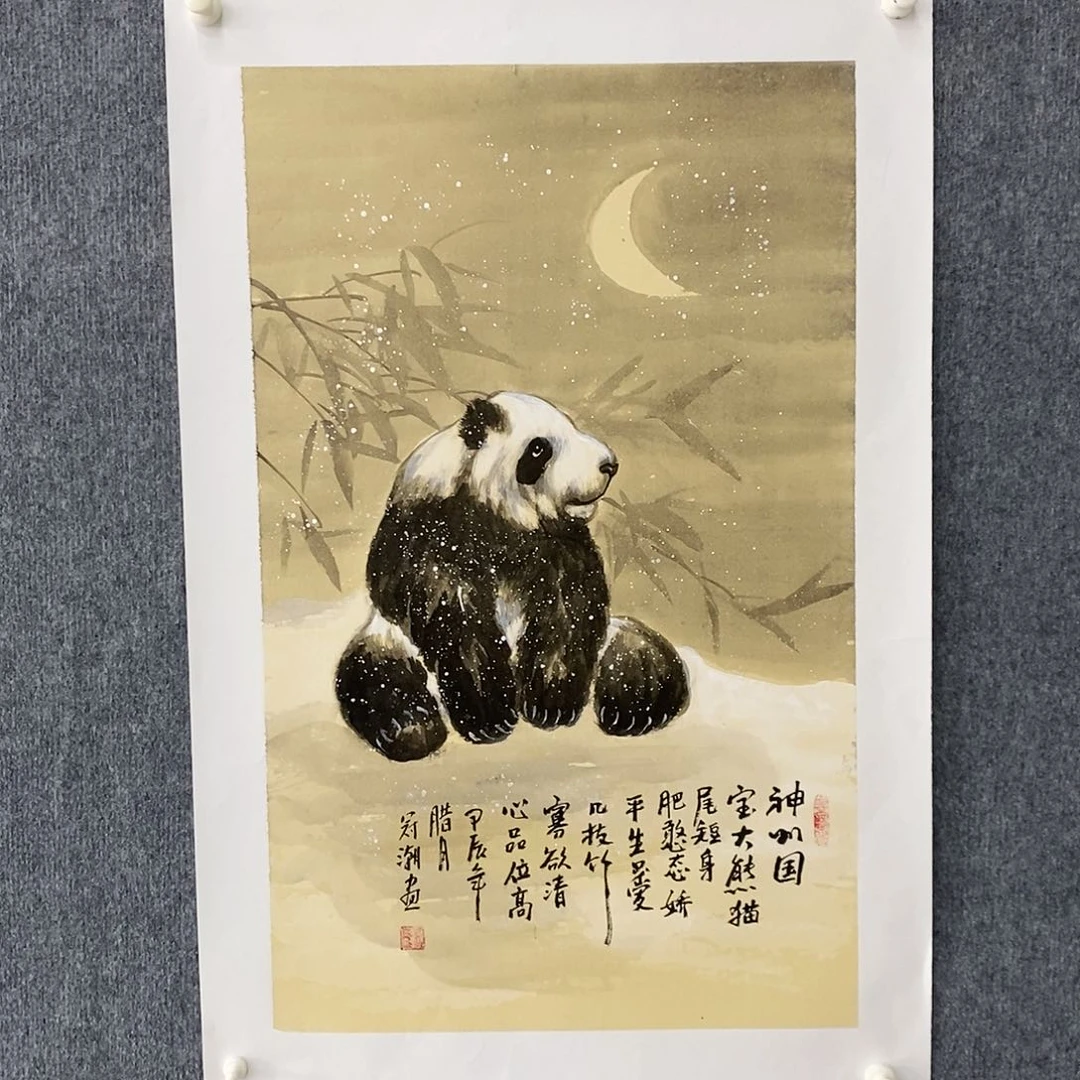 神州国
宝大熊猫
尾短身
肥憨态娇
平生爱
几枝竹
寡欲清
心品位高
甲辰年
腊月
冠潮画